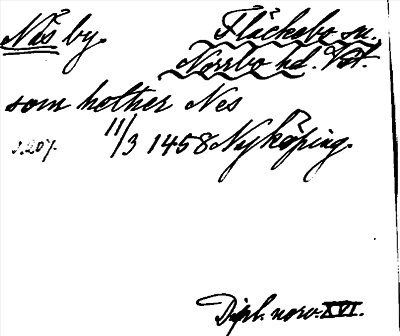 Näs by. Fläckebo sn.
Norrbo hd. Vstm.
som hether Nes
s. 207. 11/3 1458 Nyköping.
Dipl. norv. XVI.